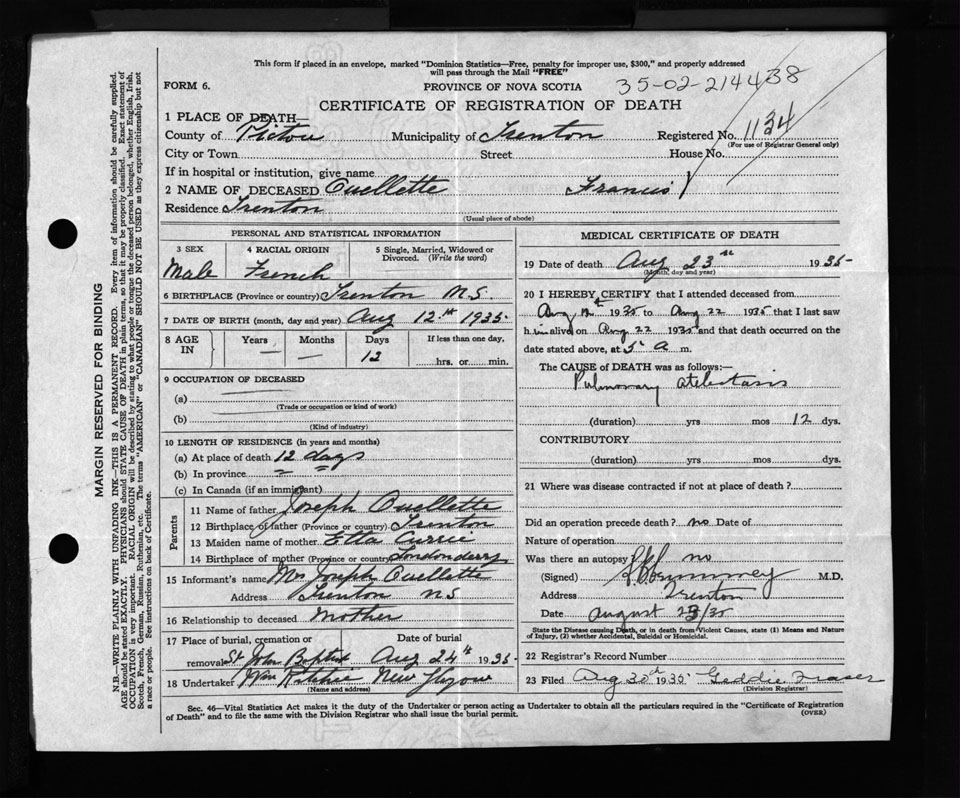 This form if placed in an envelope, marked "Dominion Statistics—Free, penalty for improper use, $300," and properly addressed
will pass through the Mail "FREE"
FORM 6.
PROVINCE OF NOVA SCOTIA
35-02-214438
CERTIFICATE OF REGISTRATION OF DEATH
1 PLACE OF DEATH—
County of Pictou Municipality of Trenton Registered No. 1134
(For use of Registrar General only)
City or Town Street House No.
If in hospital or institution, give name
2 NAME OF DECEASED Ouellette Francis
Residence Trenton
(Usual place of abode)
PERSONAL AND STATISTICAL INFORMATION
3 SEX 4 RACIAL ORIGIN 5 Single, Married, Widowed or
Divorced. (Write the word)
Male French
6 BIRTHPLACE (Province or country) Trenton N.S.
7 DATE OF BIRTH (month, day and year) Aug 12th 1935
8 AGE IN Years Months Days If less than one day,
— — 12 hrs. or min.
9 OCCUPATION OF DECEASED
(a)
(Trade or occupation or kind of work)
(b)
(Kind of industry)
10 LENGTH OF RESIDENCE (in years and months)
(a) At place of death 12 days
(b) In province " "
(c) In Canada (if an immigrant)
Parents
11 Name of father Joseph Ouellette
12 Birthplace of father (Province or country) Trenton
13 Maiden name of mother Etta Currie
14 Birthplace of mother (Province or country) Londonderry
15 Informant's name Mrs Joseph Ouellette
Address Trenton NS
16 Relationship to deceased Mother
17 Place of burial, cremation or Date of burial
removal St John Baptist Aug 24th 1935
18 Undertaker Wm Ritchie New Glasgow
(Name and address)
MEDICAL CERTIFICATE OF DEATH
19 Date of death Aug 23rd 1935
(Month, day and year)
20 I HEREBY CERTIFY that I attended deceased from
Aug 12 1935 to Aug 22 1935 that I last saw
him alive on Aug 22 1935 and that death occurred on the
date stated above, at 5 A m.
The CAUSE of DEATH was as follows:—
Pulmonary atelectasis
(duration) yrs mos 12 dys.
CONTRIBUTORY
(duration) yrs mos dys.
21 Where was disease contracted if not at place of death?
Did an operation precede death? no Date of
Nature of operation
Was there an autopsy no
(Signed) M.D.
Address Trenton
Date August 23/35
State the Disease causing Death, or in death from Violent Causes, state (1) Means and Nature
of Injury, (2) whether Accidental, Suicidal or Homicidal.
22 Registrar's Record Number
23 Filed Aug 30th 1935 Geddie Fraser
(Division Registrar)
Sec. 46—Vital Statistics Act makes it the duty of the Undertaker or person acting as Undertaker to obtain all the particulars required in the "Certificate of Registration
of Death" and to file the same with the Division Registrar who shall issue the burial permit.
(OVER)
MARGIN RESERVED FOR BINDING
N.B.—WRITE PLAINLY WITH UNFADING INK—THIS IS A PERMANENT RECORD. Every item of information should be carefully supplied.
AGE should be stated EXACTLY. PHYSICIANS should STATE CAUSE OF DEATH in plain terms, so that it may be properly classified. Exact statement of
OCCUPATION is very important. RACIAL ORIGIN will be described by stating to what people or tongue the deceased person belonged, whether English, Irish,
Scotch, French, German, Russian, Ruthenian, etc. The terms "AMERICAN" or "CANADIAN" SHOULD NOT BE USED as they express citizenship but not
a race or people. See instructions on back of Certificate.